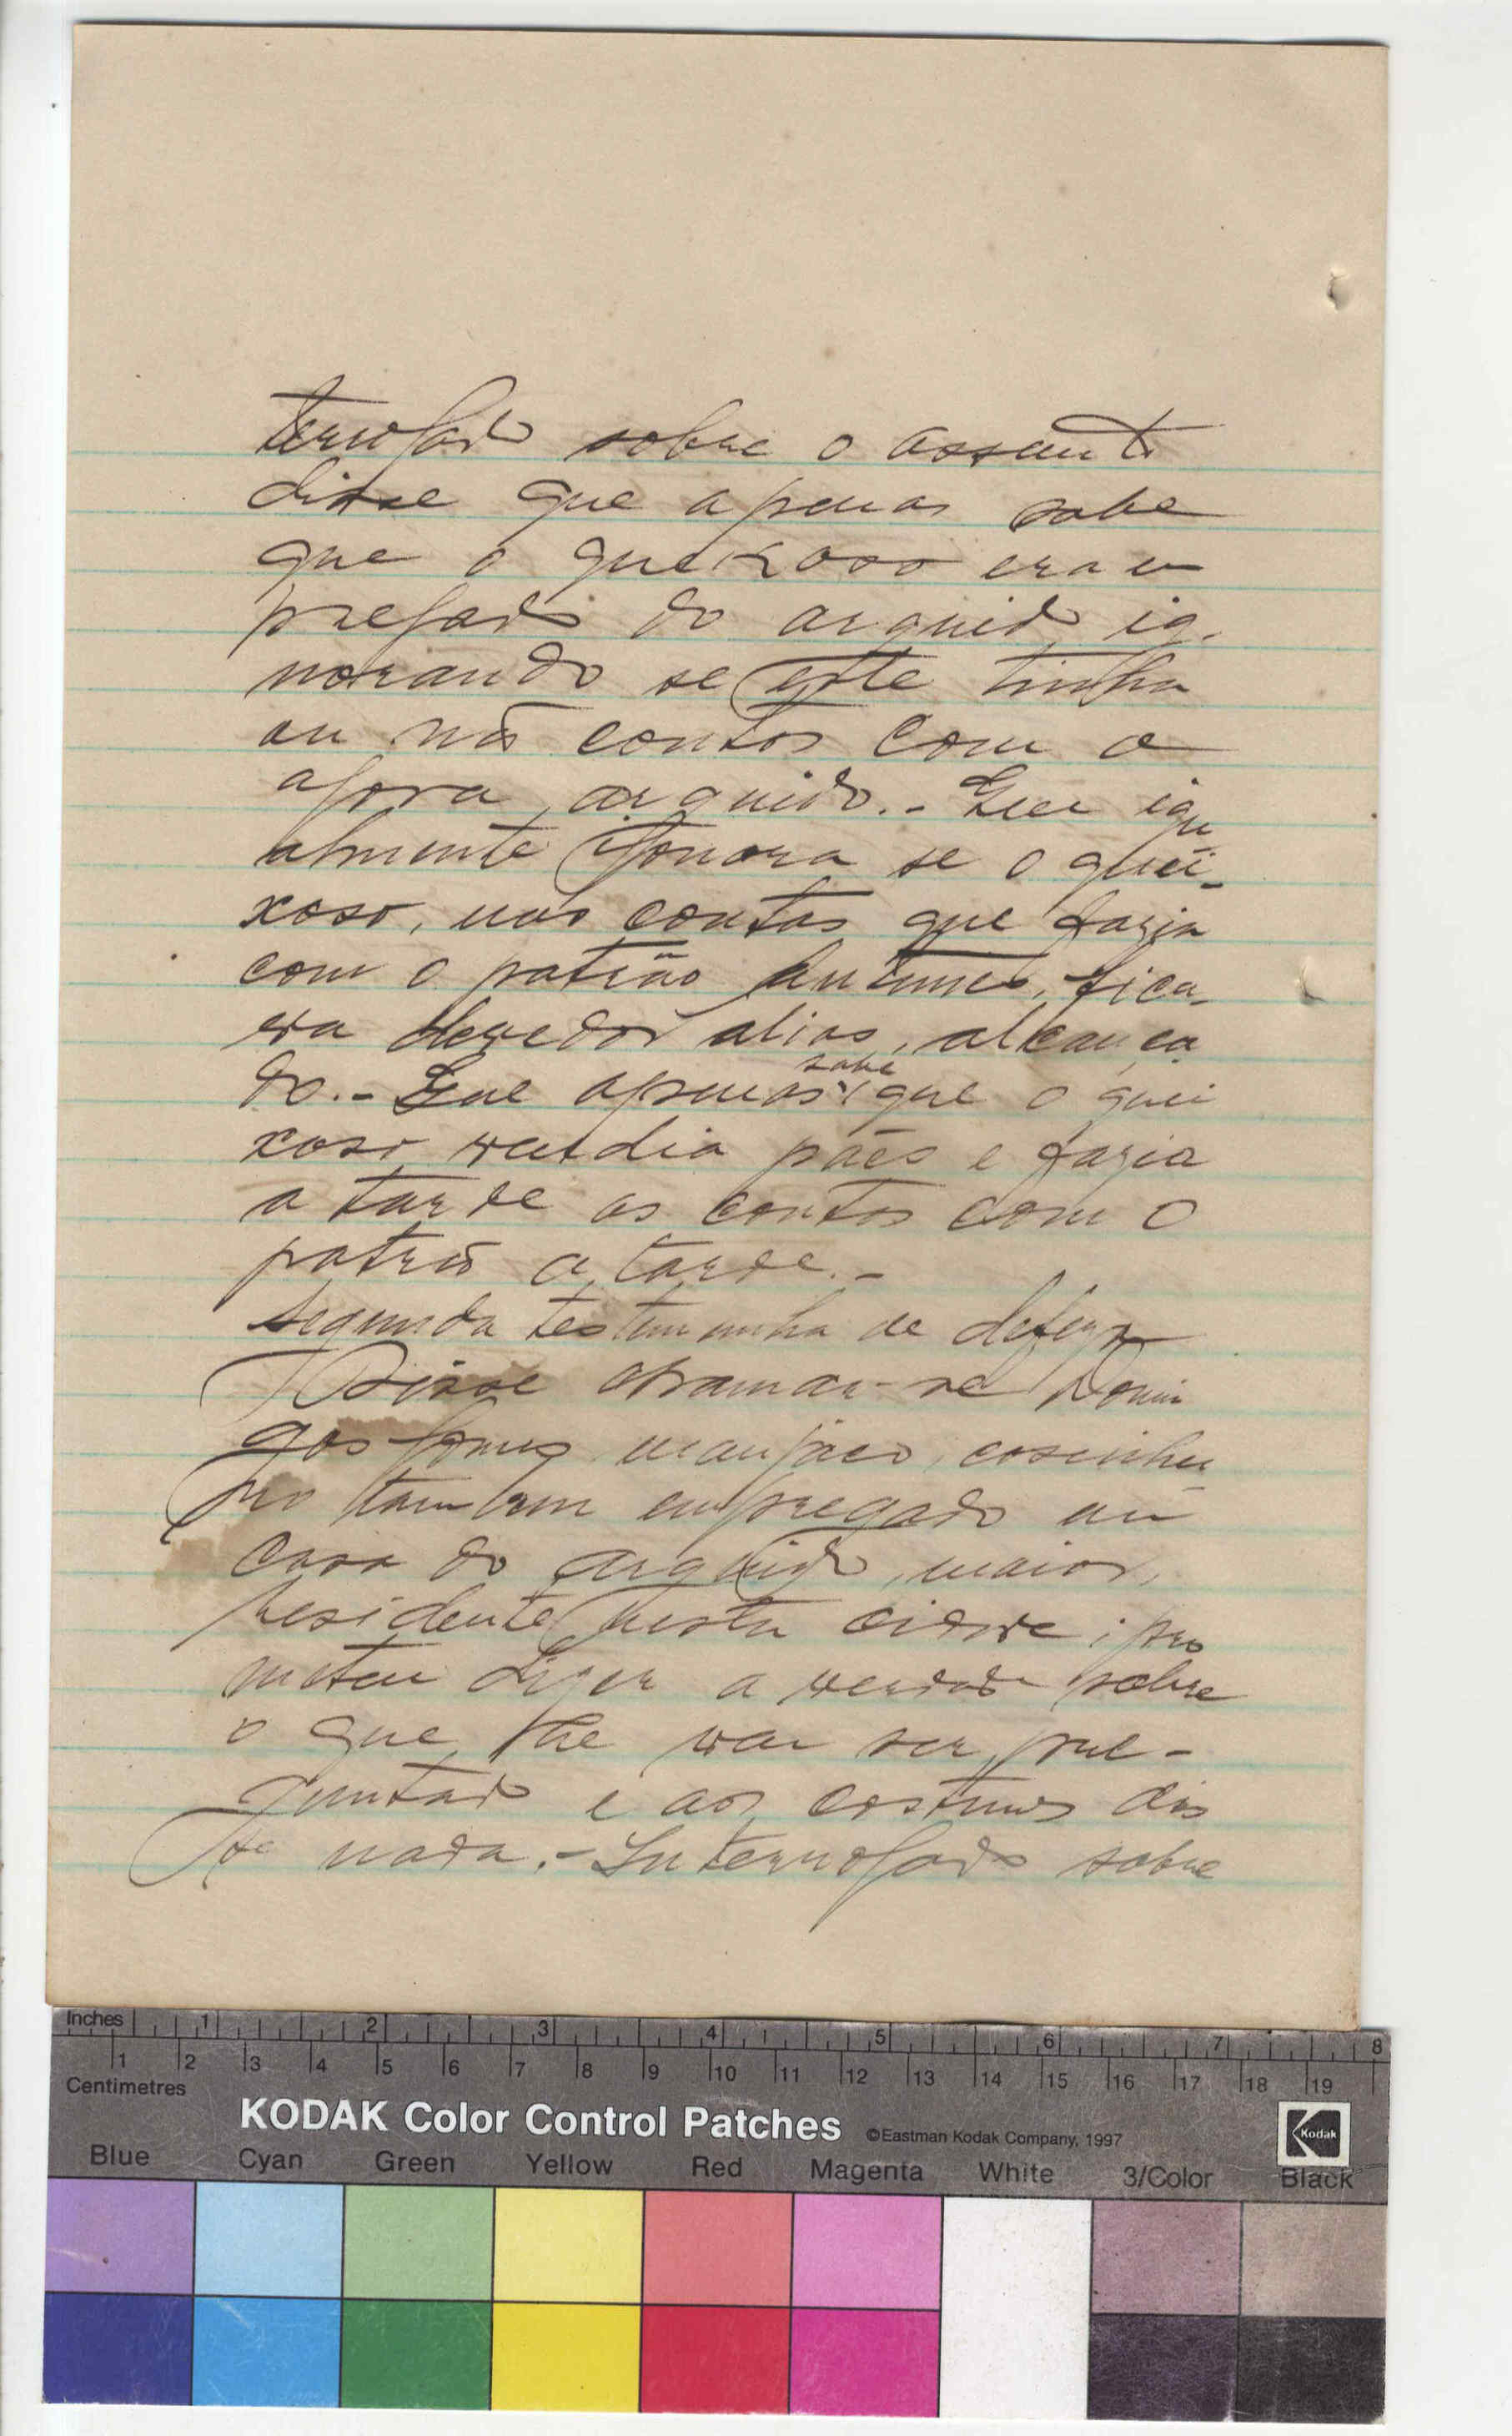 terrogado sobre o assunto
disse que apenas sabe
que o queixoso era em
pregado do arguido ig-
norando se este tinha
ou não contos com o
agora arguido.- Que igu
almente ignora se o quei-
xoso, nas contas que fazia
com o patrão Antunes, fica-
va devedor alias, alcança
do.- Que apenas sabe que o quei
xoso vendia pães e fazia
a tarde as contas com o
patrão a tarde.-
Segunda testemunha de defeza
Disse chamar-se Domin
gos Gomes, manjaco, cosinhei
ro tambem empregado em
casa do arguido, maior,
residente nesta cidade; pro
meteu dizer a verdade sobre
o que lhe vai ser pre-
guntado e aos costumes dis
se nada.- Interrogado sobre
Inches 1 2 3 4 5 6 7 8
1 2 3 4 5 6 7 8 9 10 11 12 13 14 15 16 17 18 19
Centimetres
KODAK Color Control Patches ©Eastman Kodak Company, 1997 Kodak
Blue Cyan Green Yellow Red Magenta White 3/Color Black